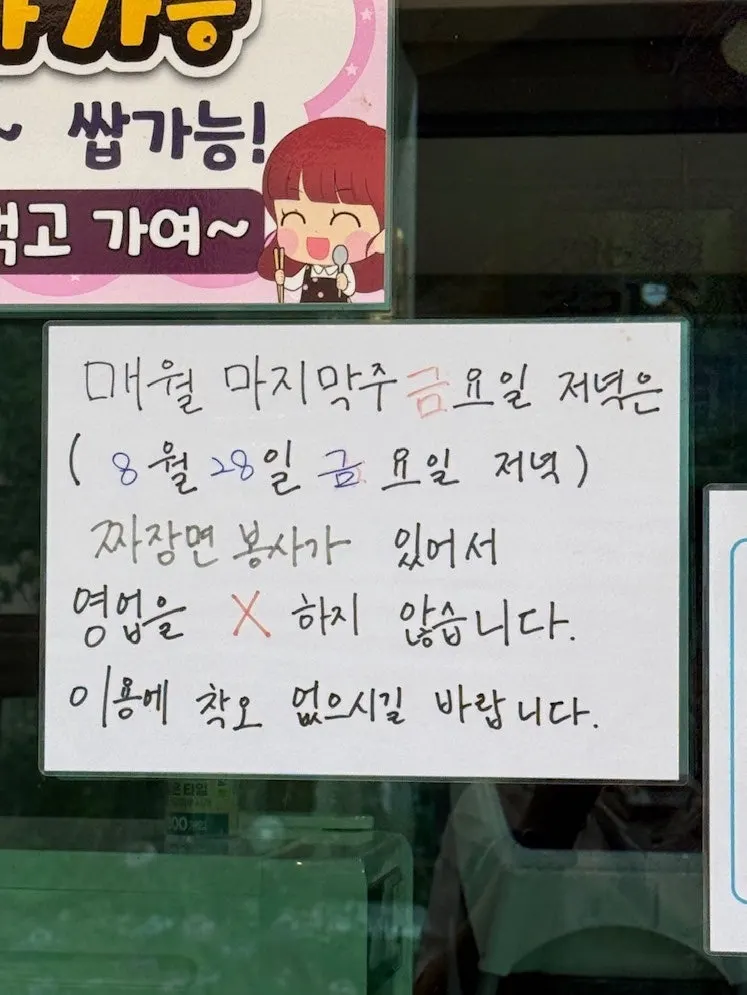 가능
~ 쌉가능!
먹고 가여~
매월 마지막주 금요일 저녁은
( 8월 28일 금요일 저녁 )
짜장면 봉사가 있어서
영업을 X 하지 않습니다.
이용에 착오 없으시길 바랍니다.